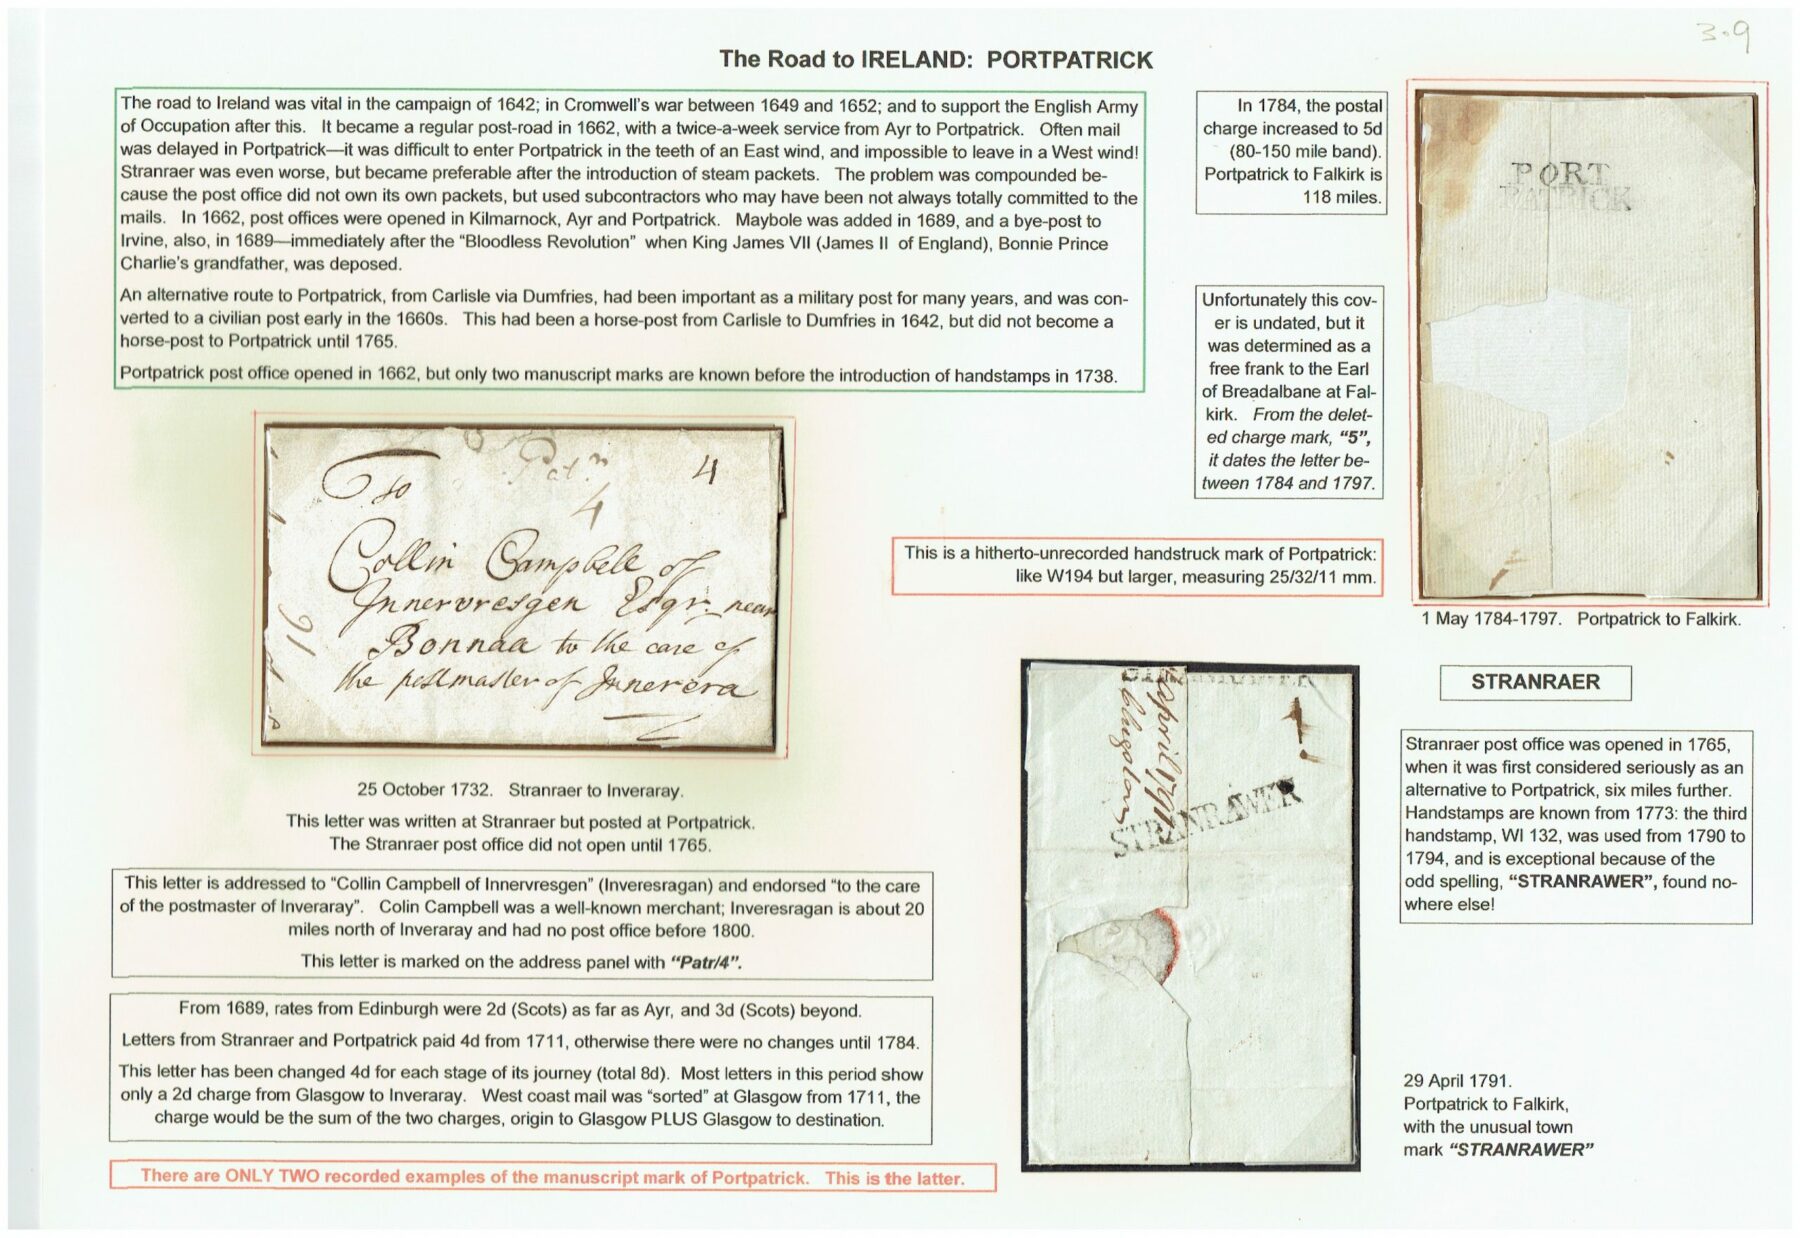 3.9
The Road to IRELAND: PORTPATRICK
The road to Ireland was vital in the campaign of 1642; in Cromwell's war between 1649 and 1652; and to support the English Army
of Occupation after this. It became a regular post-road in 1662, with a twice-a-week service from Ayr to Portpatrick. Often mail
was delayed in Portpatrick—it was difficult to enter Portpatrick in the teeth of an East wind, and impossible to leave in a West wind!
Stranraer was even worse, but became preferable after the introduction of steam packets. The problem was compounded be-
cause the post office did not own its own packets, but used subcontractors who may have been not always totally committed to the
mails. In 1662, post offices were opened in Kilmarnock, Ayr and Portpatrick. Maybole was added in 1689, and a bye-post to
Irvine, also, in 1689—immediately after the “Bloodless Revolution” when King James VII (James II of England), Bonnie Prince
Charlie's grandfather, was deposed.
An alternative route to Portpatrick, from Carlisle via Dumfries, had been important as a military post for many years, and was con-
verted to a civilian post early in the 1660s. This had been a horse-post from Carlisle to Dumfries in 1642, but did not become a
horse-post to Portpatrick until 1765.
Portpatrick post office opened in 1662, but only two manuscript marks are known before the introduction of handstamps in 1738.
In 1784, the postal
charge increased to 5d
(80-150 mile band).
Portpatrick to Falkirk is
118 miles.
Unfortunately this cov-
er is undated, but it
was determined as a
free frank to the Earl
of Breadalbane at Fal-
kirk. From the delet-
ed charge mark, “5”,
it dates the letter be-
tween 1784 and 1797.
This is a hitherto-unrecorded handstruck mark of Portpatrick:
like W194 but larger, measuring 25/32/11 mm.
PORT
PATRICK
1 May 1784-1797. Portpatrick to Falkirk.
Patr
4
4
To
Collin Campbell of
Innervresgen Esqr. near
Bonnaa to the care of
the postmaster of Innerera
25 October 1732. Stranraer to Inveraray.
This letter was written at Stranraer but posted at Portpatrick.
The Stranraer post office did not open until 1765.
This letter is addressed to “Collin Campbell of Innervresgen” (Inveresragan) and endorsed “to the care
of the postmaster of Inveraray”. Colin Campbell was a well-known merchant; Inveresragan is about 20
miles north of Inveraray and had no post office before 1800.
This letter is marked on the address panel with “Patr/4”.
From 1689, rates from Edinburgh were 2d (Scots) as far as Ayr, and 3d (Scots) beyond.
Letters from Stranraer and Portpatrick paid 4d from 1711, otherwise there were no changes until 1784.
This letter has been changed 4d for each stage of its journey (total 8d). Most letters in this period show
only a 2d charge from Glasgow to Inveraray. West coast mail was “sorted” at Glasgow from 1711, the
charge would be the sum of the two charges, origin to Glasgow PLUS Glasgow to destination.
There are ONLY TWO recorded examples of the manuscript mark of Portpatrick. This is the latter.
STRANRAWER
STRANRAER
Stranraer post office was opened in 1765,
when it was first considered seriously as an
alternative to Portpatrick, six miles further.
Handstamps are known from 1773: the third
handstamp, WI 132, was used from 1790 to
1794, and is exceptional because of the
odd spelling, “STRANRAWER”, found no-
where else!
29 April 1791.
Portpatrick to Falkirk,
with the unusual town
mark “STRANRAWER”